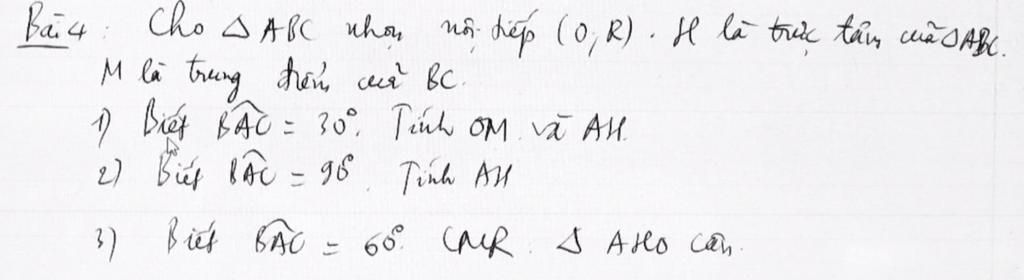 Bài 4: Cho Δ ABC nhọn nội tiếp (O, R). H là trực tâm của Δ ABC.
M là trung điểm của BC.
1) Biết BAC = 30°. Tính OM và AH.
2) Biết BAC = 90°. Tính AH
3) Biết BAC = 60°. CMR Δ AHO cân.